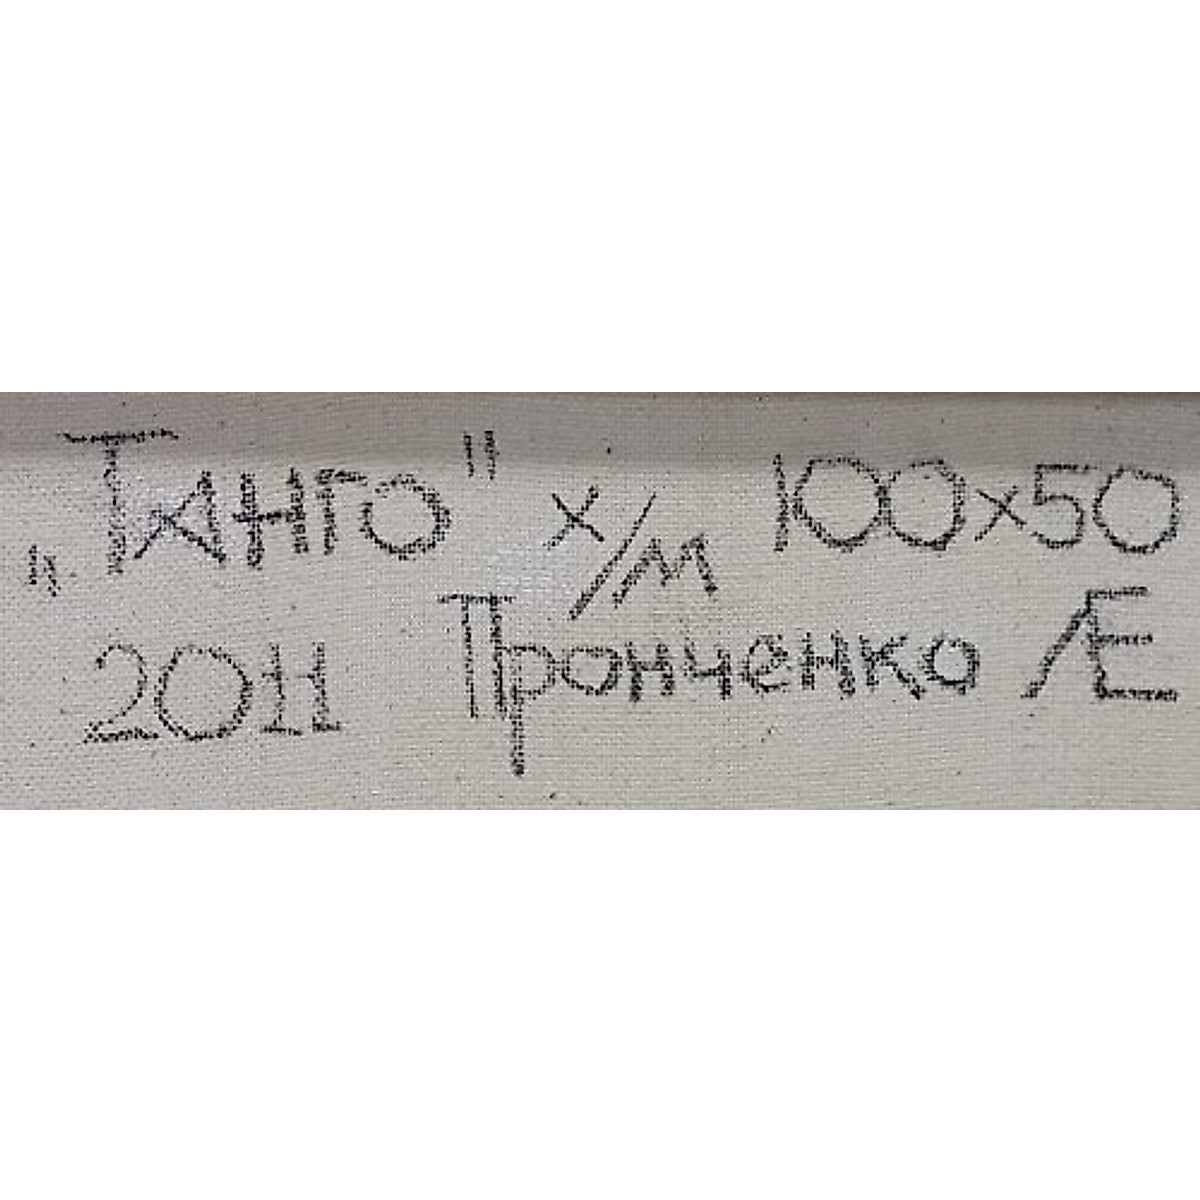 „Танго" х/м 100х50
2011 Пронченко ЛЕ